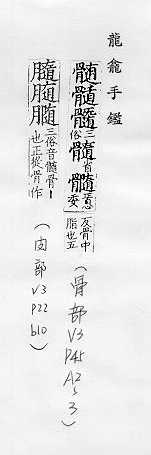 龍龕手鑑
髓三俗髓省髄息委反骨中脂也五
（骨部 V3 P45 A2~3）
三俗音髓骨丨也正從骨作
（肉部 V3 P22 b10）